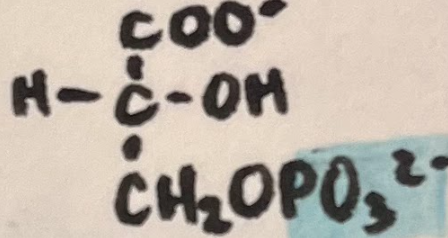 COO⁻
H-C-OH
CH₂OPO₃²⁻